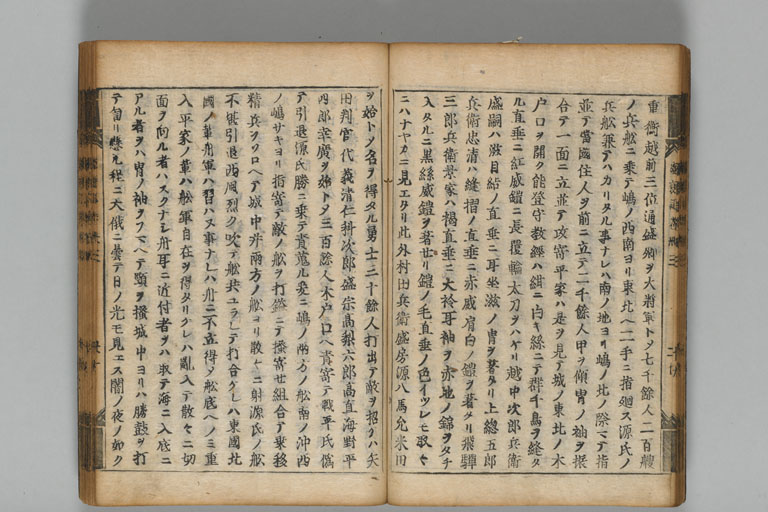 重衡越前三位通盛卿ヲ大將軍トメ七千餘人二百艘
ノ兵舩ニ乗テ嶋ノ西南ヨリ東北ヘ二手ニ指廻ス源氏ノ
兵舩兼テハカリタル事ナレハ南ノ地ヨリ嶋ノ北ノ際マテ指
並テ當國住人ヲ前ニ立テ一千餘人甲ヲ傾冑ノ袖ヲ振
合テ一面ニ立並テ攻寄平家ハ是ヲ見テ城ノ東北ノ木
户口ヲ開ク能登守教經ハ紺ニ白キ絲ニテ群千鳥ヲ縫タ
ル直垂ニ紅威鎧ニ長覆輪太刀ヲハケリ越中次郎兵衛
盛嗣ハ滋目結ノ直垂ニ耳坐滋ノ冑ヲ著タリ上總五郎
兵衛忠清ハ縫摺ノ直垂ニ赤威肩白ノ鎧ヲ著タリ飛驒
三郎兵衛景家ハ褐直垂ニ大衿耳袖ヲ赤地ノ錦ヲタチ
入タルニ黒絲威鎧ヲ著セリ鎧ノ毛直垂ノ色イツレモ取々
ニハナヤカニ見エタリ此外村田兵衛盛房源八馬允米田
ヲ始トメ名ヲ得タル勇士三十餘人打出テ敵ヲ招ヲハ矢
田判官代義清仁科次郎盛宗高梨六郎高直海野平
四郎幸廣ヲ始トメ三百餘人木户口ヘ責寄テ戰平氏僞
テ引退源氏勝ニ乗テ責蒐ル爰ニ嶋ノ兩方ノ舩南ノ沖西
ノ嶋サキヨリ指寄テ敵ノ舩ヲ打鎰ニテ撥寄せ組合テ乗移
精兵ヲソロヘテ城中并兩方ノ舩ヨリ散々ニ射源氏ノ舩
不堪引退西風烈ク吹テ舩共ユラレテ打合ケレハ東國北
國ノ輩舟軍ハ習ハス事ナレハ舟ニ不立得ノ舩底ヘノミ重
入平家ノ輩ハ舩軍自在ヲ得タリケレハ亂入テ散々ニ切
面ヲ向ル者ハスクナシ舟耳ニ近付者ヲハ取テ海ニ入底ニ
アル者ヲハ冑ノ袖ヲフマヘテ頸ヲ掻城中ヨリハ勝皷ヲ打
テ訇リ懸ル程ニ天俄ニ曇テ日ノ光モ見エス闇ノ夜ノ如ク